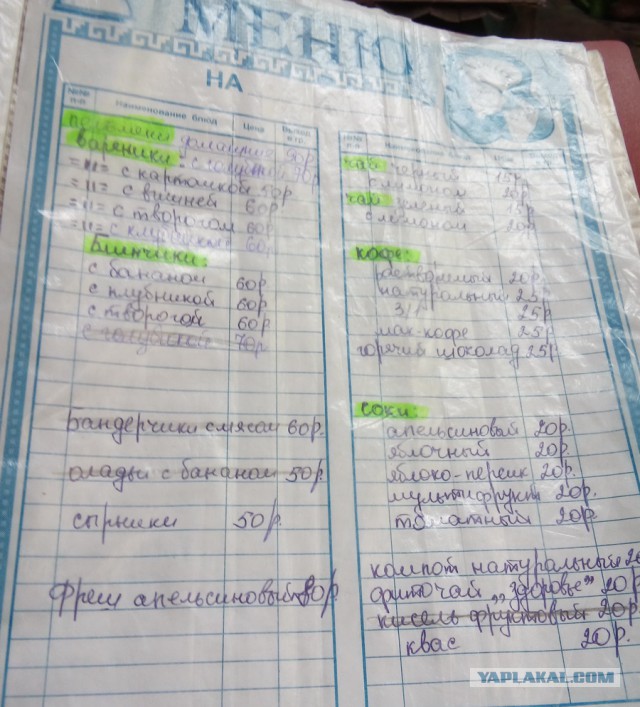 МЕНЮ
НА
№№ п-п Наименование блюд Цена Выход
пельмени домашние 50р.
вареники с капустой 50р
=II= с картошкой 50р
=II= с вишней 60р
=II= с творогом 60р
=II= с клубникой 60р
Блинчики:
с бананом 60р
с клубникой 60р
с творогом 60р
70р
Бандерчики с мясом 60р.
оладьи с бананом 50р.
сырники 50р.
Фреш апельсиновый 80р.
чай черный 15р
с лимоном 20р
чай зеленый 15р
с лимоном 20р
кофе:
растворимый 20р.
натуральный 25р
3/1 25р
мак-кофе 25р
горячий шоколад 25р.
соки:
апельсиновый 20р.
яблочный 20р.
яблоко-персик 20р.
мультифрукт 20р.
томатный 20р.
компот натуральный
фиточай „здоровье” 20р.
кисель фруктовый 20р
квас 20р.
YAPLAKAL.COM